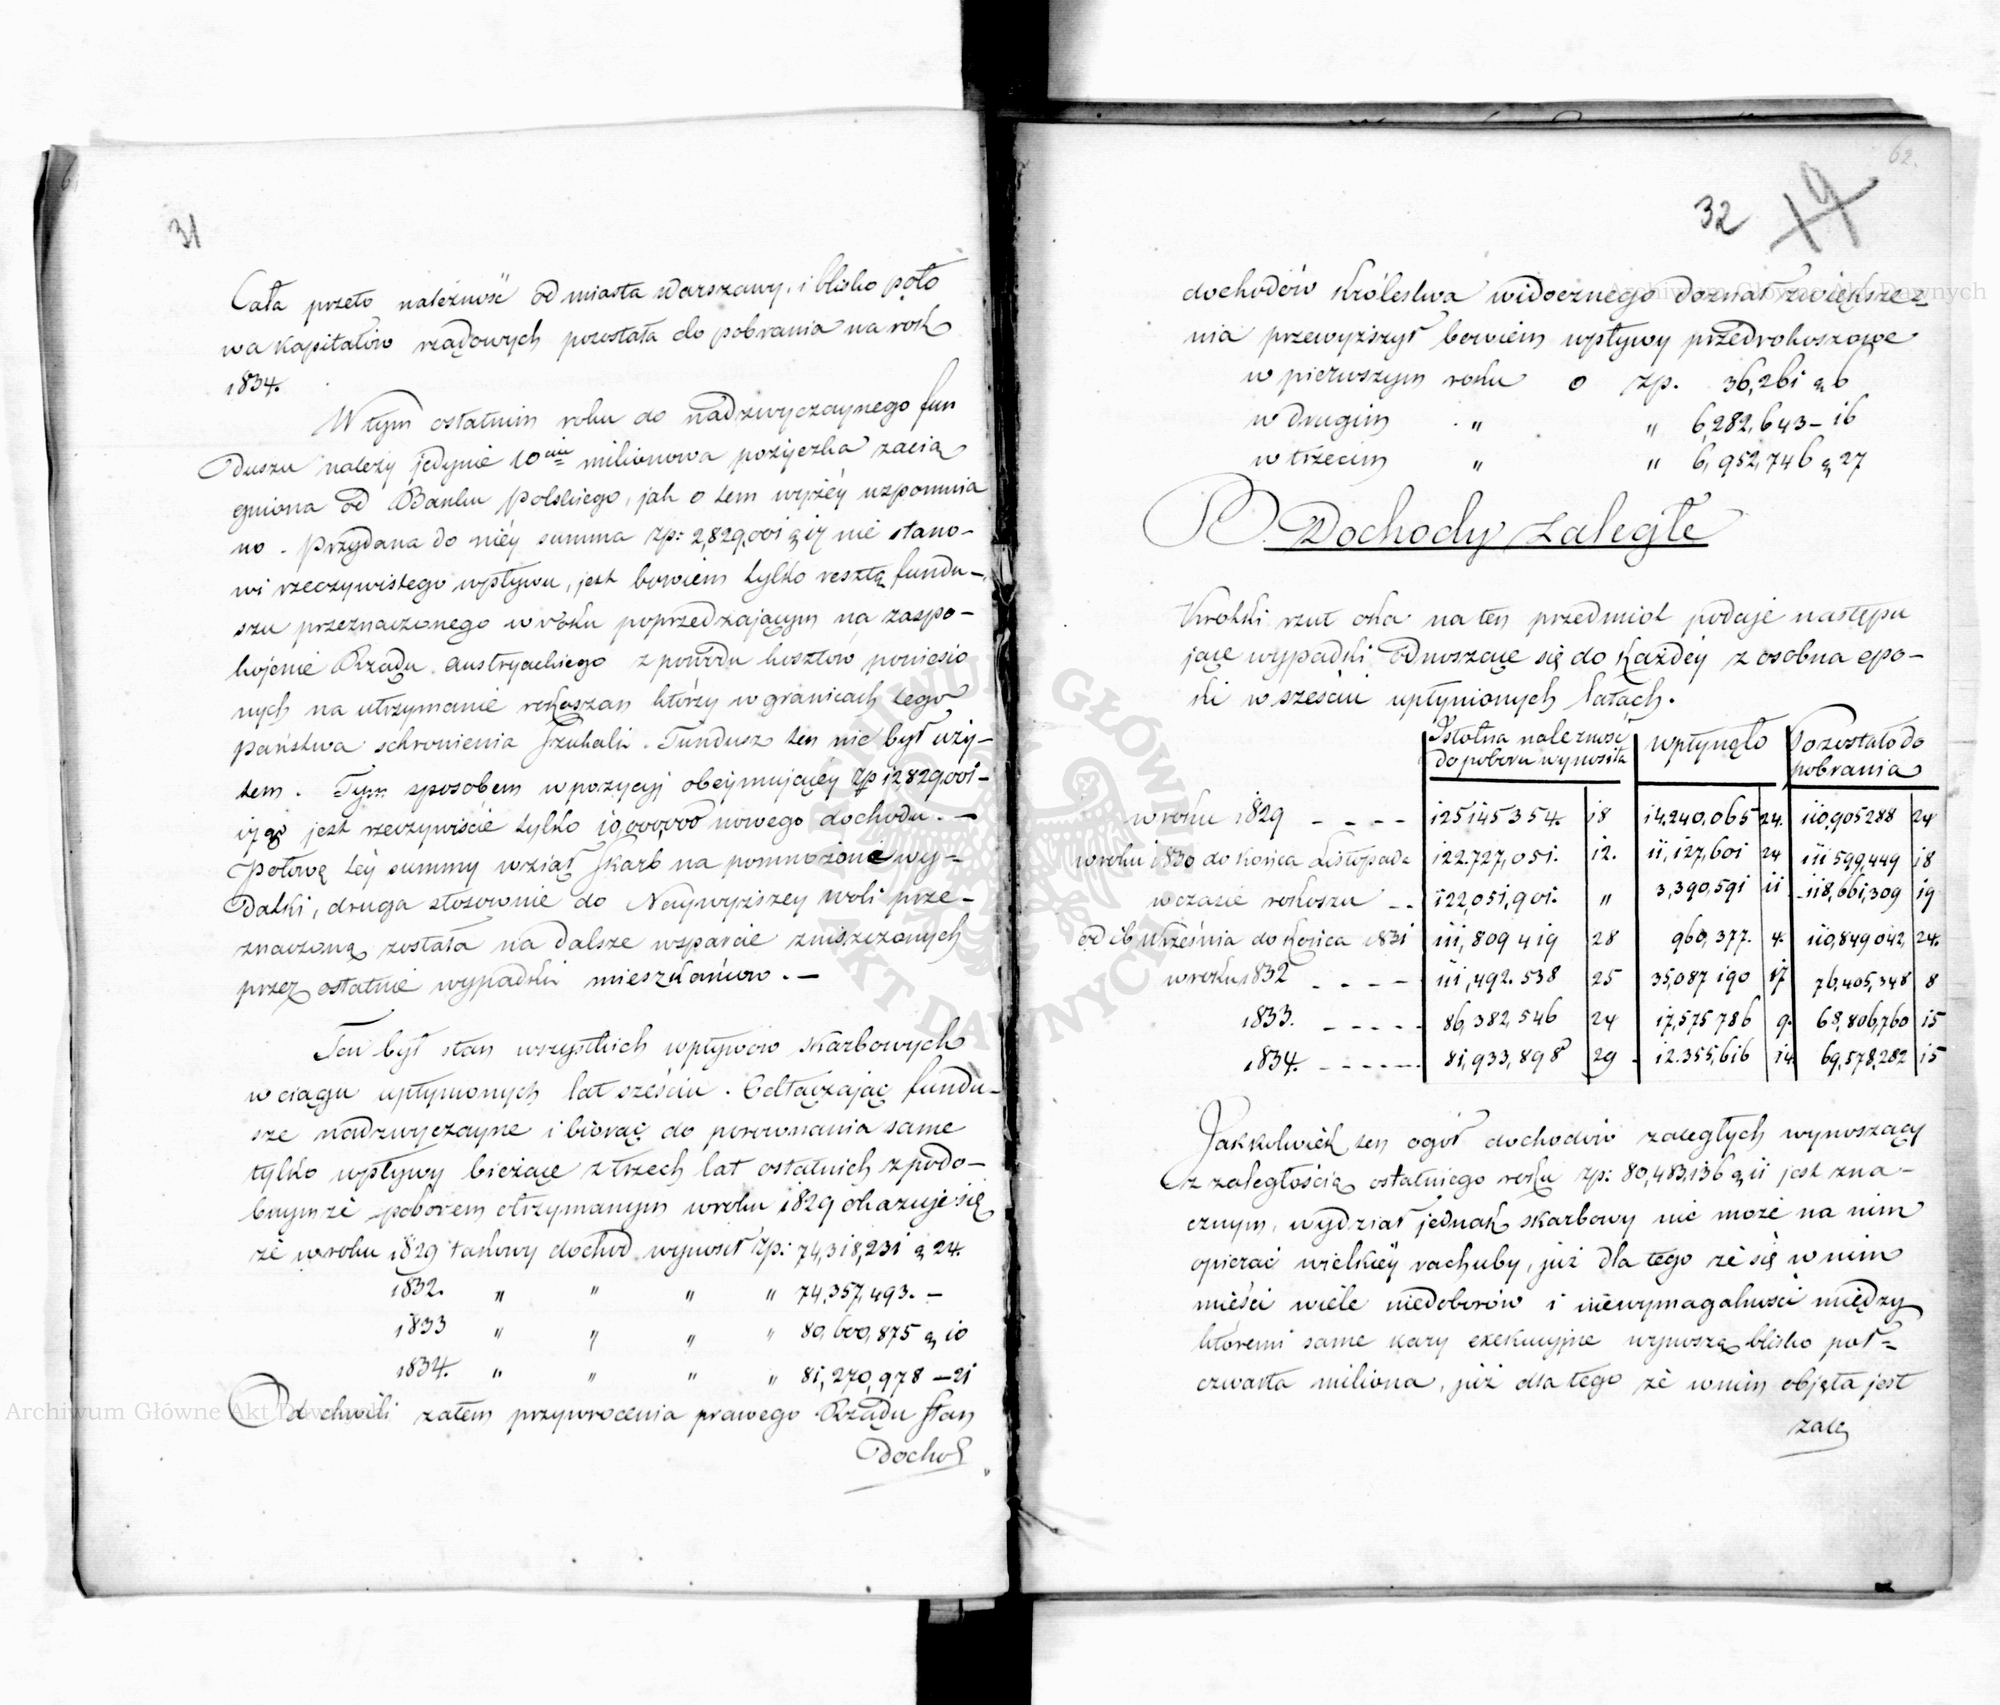 31
Cała przeto należność od miasta Warszawy, i blisko poło
wa kapitałów rządowych pozostała do pobrania na rok
1834.
W tym ostatnim roku do nadzwyczaynego fun
duszu należy jedynie 10cio milionowa pożyczka zacią
gniona od Banku Polskiego, jak o tem wyżéy wzpomnia
no. Przydana do niéy summa zp: 2,829,001 g 17 nie stano-
wi rzeczywistego wpływu, jest bowiem tylko resztą fundu-
szu przeznaczonego w roku poprzedzającym na zaspo-
kojenie Rządu austryackiego z powodu kosztów poniesio
nych na utrzymanie rokoszan którzy w granicach tego
państwa schronienia szukali. Fundusz ten nie był uży-
tem. Tym sposobem w pozycyj obeymującéy zp 12,829,001-
17 g jest rzeczywiście tylko 10,000,000 nowego dochodu. -
Połowę téy summy wziął skarb na pomnożone wy-
datki, druga stosownie do Naywyższey woli prze-
znaczoną została na dalsze wsparcie zniszczonych
przez ostatnie wypadki mieszkańców. -
Ten był stan wszystkich wpływów skarbowych
w ciągu upłynionych lat sześciu. Odłączając fundu-
sze nadzwyczayne i biorąc do porownania same
tylko wpływy bieżące z trzech lat ostatnich z podo-
bnymże poborem otrzymanym w roku 1829 okazuje się
że w roku 1829 takowy dochod wynosił zp: 74,318,231 g 24.
1832. " " " " 74,357,493. -
1833 " " " " 80,600,875 g 10
1834. " " " " 81,270,978 - 21
Od chwili zatem przywrocenia prawego Rządu stan
Docho
62.
32 19
dochodów Królestwa widocznego doznał zwiększe
nia przewyższył bowiem wpływy przedrokoszowe
w pierwszym roku o zp. 36,261 g 6
w drugim " " 6,282,643 - 16
w trzecim " " 6,952,746 g 27
B. Dochody zaległe
Krotki rzut oka na ten przedmiot podaje następu
jące wypadki odnoszące się do każdéy z osobna epo-
ki w sześciu upłynionych latach.
Istotna należność do poboru wynosiła | wpłynęło | Pozostało do pobrania
w roku 1829 - - - - 125145354. 18 14,240,065 24. 110,905288 24
w roku 1830 do końca Listopada 122.727,051. 12. 11,127,601 24 111599,449 18
w czasie rokoszu - - 122,051,901. " 3,390,591 11 118,661,309 19
od 16 Września do końca 1831 111,809419 28 960,377. 4. 110,849042, 24.
w roku 1832 - - - - 111,492.538 25 35,087190 17 76,405,348 8
1833. - - - - - 86,382,546 24 17,575786 9. 68,806,760 15
1834. - - - - - - 81,933,898 29 12.355,616 14 69,578,282 15
Jakkolwiek ten ogół dochodów zaległych wynoszący
z zaległością ostatniego roku zp: 80,483,136 g 11 jest zna-
cznym, wydział jednak skarbowy nie może na nim
opierać wielkiéy rachuby, już dla tego że się w nim
mieści wiele niedoborów i niewymagalności między
któremi same kary exekucyjne wynoszą blisko pół-
czwarta miliona, już dla tego że w nim objęta jest
zale
Archiwum Główne Akt Dawnych
Archiwum Główne Akt Dawnych
ARCHIWUM GŁÓWNE AKT DAWNYCH